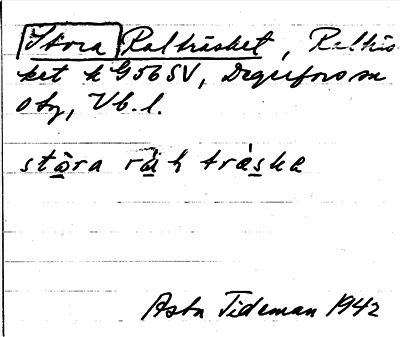 Stora Ralträsket,Ralträs
ket k G56SV, Degerfors sn
otg, Vb. l.
stora rål träske
Asta Tideman 1942